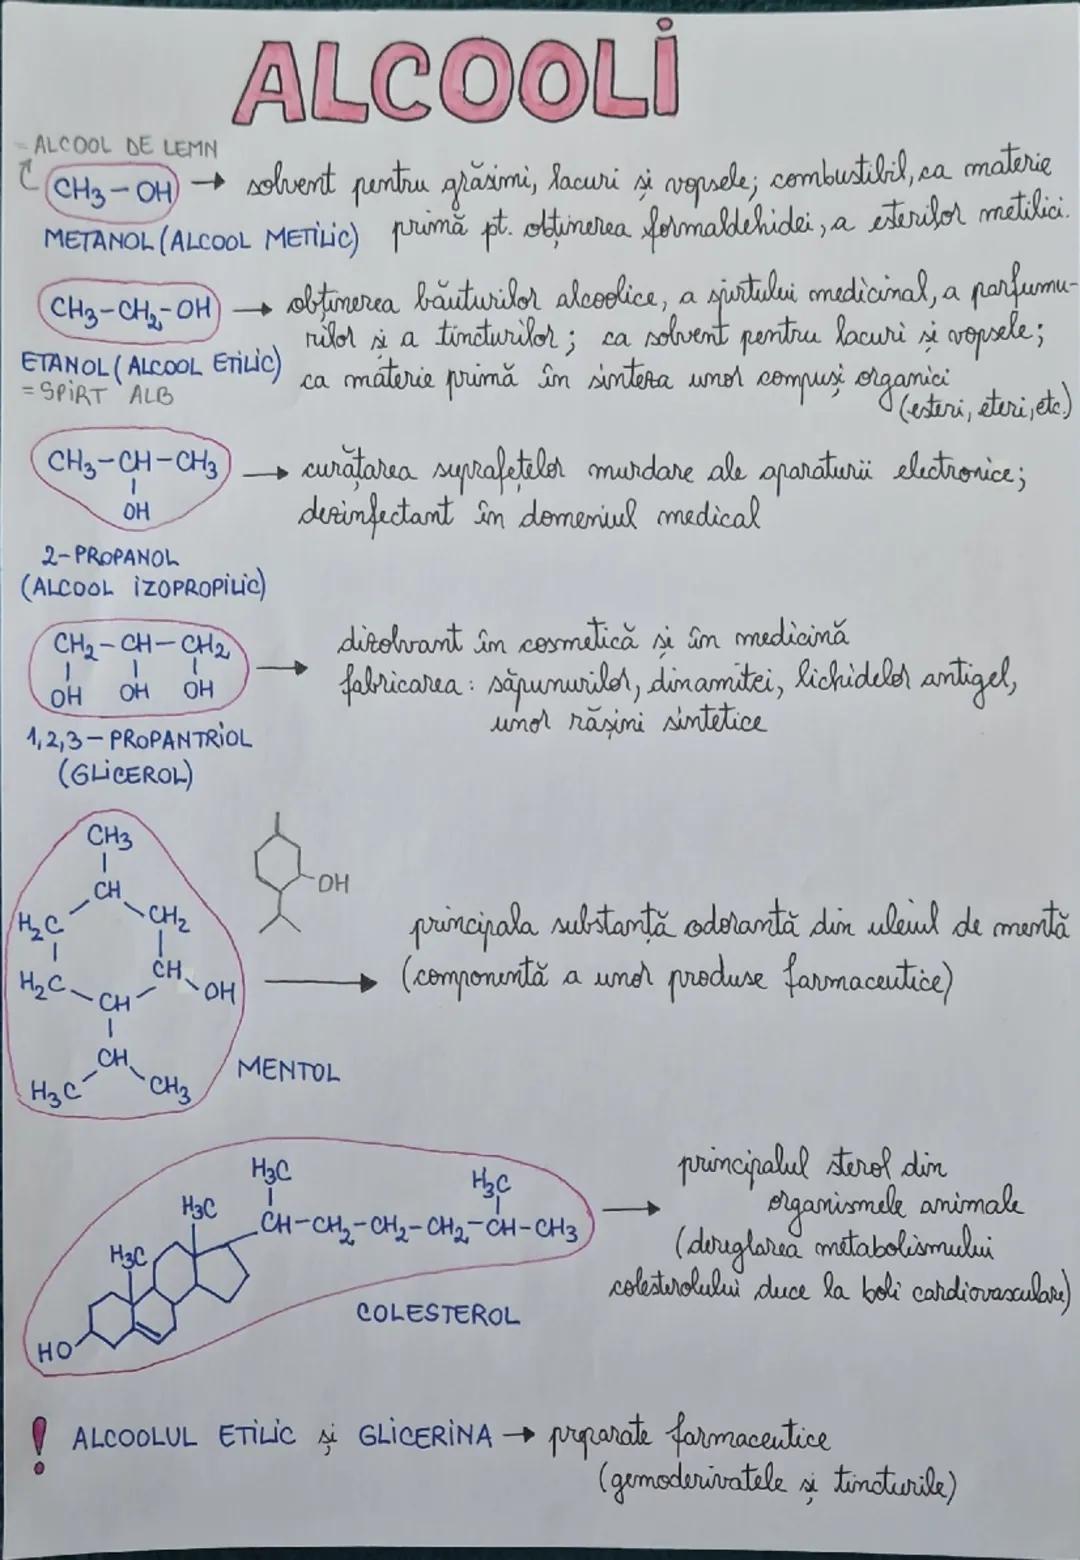 ALCOOLI
= ALCOOL DE LEMN
CH3-OH → solvent pentru grăsimi, lacuri și vopsele; combustibil, ca materie
METANOL (ALCOOL METILIC) primă pt. obținerea formaldehidei, a esterilor metilici.
CH3-CH2-OH → obținerea băuturilor alcoolice, a spirtului medicinal, a parfumu-
rilor și a tincturilor; ca solvent pentru lacuri și vopsele;
ETANOL (ALCOOL ETILIC) ca materie primă în sinteza unor compuși organici
= SPIRT ALB (esteri, eteri, etc.)
CH3-CH-CH3 → curățarea suprafețelor murdare ale aparaturii electronice;
OH dezinfectant în domeniul medical
2-PROPANOL
(ALCOOL IZOPROPILIC)
CH2-CH-CH2 → dizolvant în cosmetică și în medicină
OH OH OH fabricarea: săpunurilor, dinamitei, lichidelor antigel,
unor rășini sintetice
1,2,3-PROPANTRIOL
(GLICEROL)
CH3
CH OH
H2C CH2 principala substanță odorantă din uleiul de mentă
H2C CH OH → (componentă a unor produse farmaceutice)
CH
CH
H3C CH3 MENTOL
H3C H3C principalul sterol din
H3C → organismele animale
CH-CH2-CH2-CH2-CH-CH3
H3C (dereglarea metabolismului
colesterolului duce la boli cardiovasculare)
COLESTEROL
HO
! ALCOOLUL ETILIC și GLICERINA → preparate farmaceutice
(gemoderivatele și tincturile)